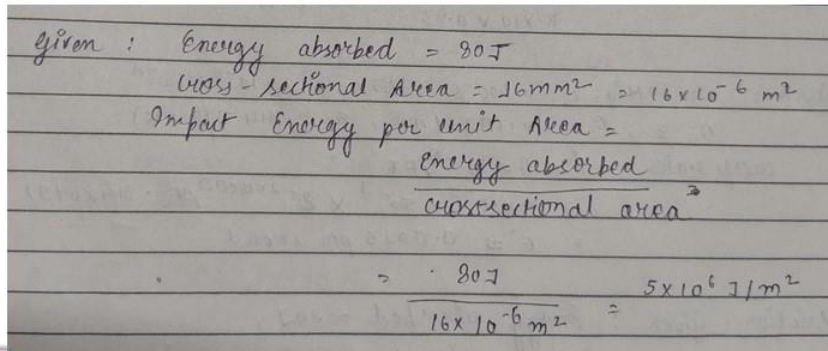 Given : Energy absorbed = 80J
Cross-sectional Area = 16mm² = 16 x 10⁻⁶ m²
Impact Energy per unit Area =
energy absorbed
crosssectional area
= 80J = 5x10⁶ J/m²
16x10⁻⁶ m²